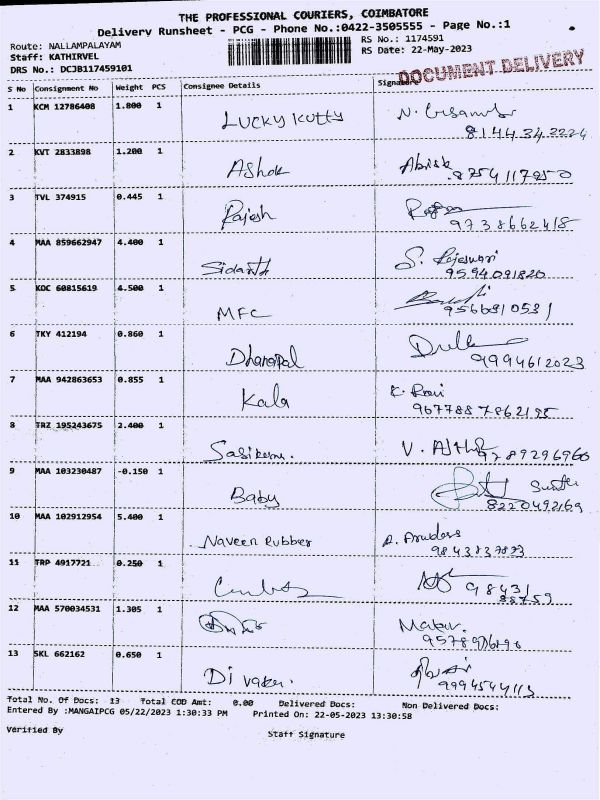 THE PROFESSIONAL COURIERS, COIMBATORE
Delivery Runsheet - PCG - Phone No.:0422-3505555 - Page No.:1
Route: NALLAMPALAYAM RS No.: 1174591
Staff: KATHIRVEL RS Date: 22-May-2023
DRS No.: DCJB117459101
DOCUMENT DELIVERY
S No Consignment No Weight PCS Consignee Details Signature
1 KCM 12786408 1.800 1
Lucky Kutty
8144342224
2 KVT 2833898 1.200 1
Ashok
8754117850
3 TVL 374915 0.445 1
Rajesh
9738662418
4 MAA 859662947 4.400 1
Sidarth S. Rajeswari
9594091820
5 KOC 60815619 4.500 1
MFC
6 TKY 412194 0.860 1
Dhanapal
9994612023
7 MAA 942863653 0.855 1
Kala K. Ravi
8 TRZ 195243675 2.400 1
9789296960
9 MAA 103230487 -0.150 1
Baby
8220492169
10 MAA 102912954 5.400 1
Naveen Rubber
11 TRP 4917721 0.250 1
12 MAA 570034531 1.305 1
13 SKL 662162 0.650 1
Total No. Of Docs: 13 Total COD Amt: 0.00 Delivered Docs: Non Delivered Docs:
Entered By :MANGAIPCG 05/22/2023 1:30:33 PM Printed On: 22-05-2023 13:30:58
Verified By Staff Signature